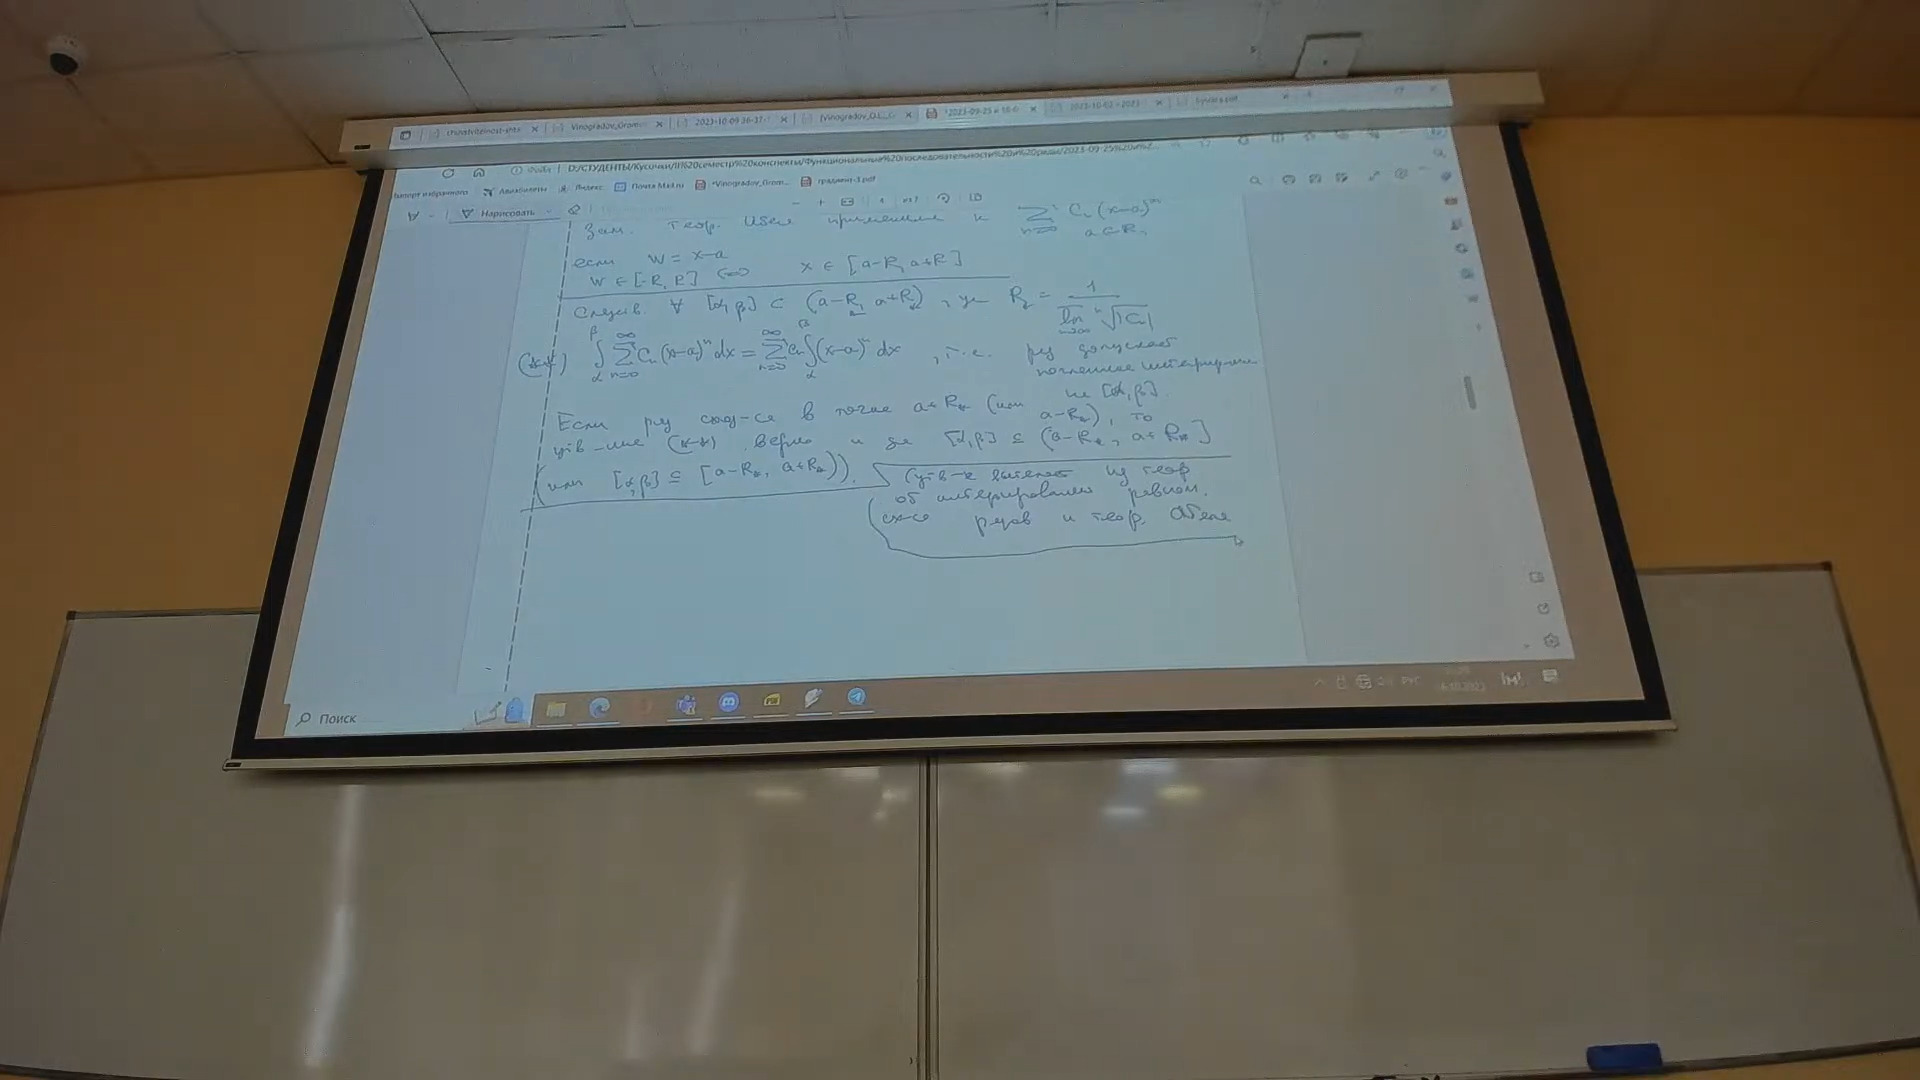 Vinogradov_Grom...
2023-10-09 36-37-
(Vinogradov_O.L._G
2023-10-02 - 2023
Файл D:/СТУДЕНТЫ/Кусочки/III%20семестр%20конспекты/Функциональные%20последовательности%20и%20ряды/2023-09-25%20и%2...
Импорт избранного Авиабилеты Яндекс Почта Mail.ru *Vinogradov_Grom... градиент-3.pdf
Нарисовать
Зам. Теор. Абеля применима к ∑ₙ₌₀^∞ Cₙ(x-a)ⁿ
a ∈ R,
если W = x-a
W ∈ [-R, R] ⇔ x ∈ [a-R, a+R]
Следств. ∀ [α, β] ⊂ (a-R, a+R), где R = 1 / lim ⁿ√|Cₙ|
n→∞
(**) ∫_α^β ∑ₙ₌₀^∞ Cₙ(x-a)ⁿ dx = ∑ₙ₌₀^∞ Cₙ ∫_α^β (x-a)ⁿ dx, т.е. ряд допускает
почленное интегр-ние
на [α, β].
Если ряд сход-ся в точке a+R* (или a-R*), то
утв-ние (**) верно и для [α, β] ⊆ (a-R*, a+R*]
(или [α, β] ⊆ [a-R*, a+R*)).
(утв-е вытекает из теор
об интегрировании равном.
сх-ся рядов и теор. Абеля
Поиск
РУС